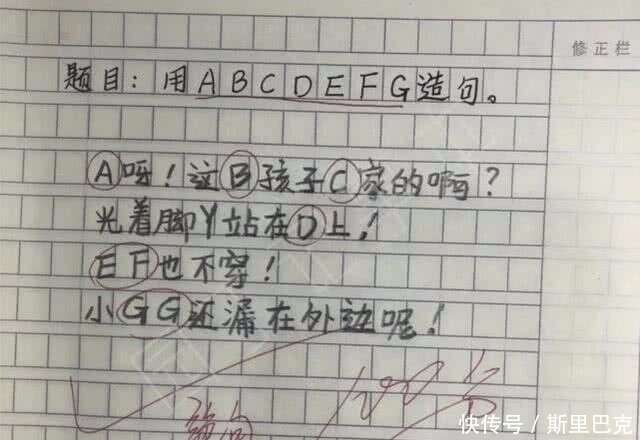 修正栏
题目：用ABCDEFG造句。
A呀！这B孩子C家的啊？
光着脚丫站在D上！
EF也不穿！
小GG还漏在外边呢！
100分
快传号／斯里巴克